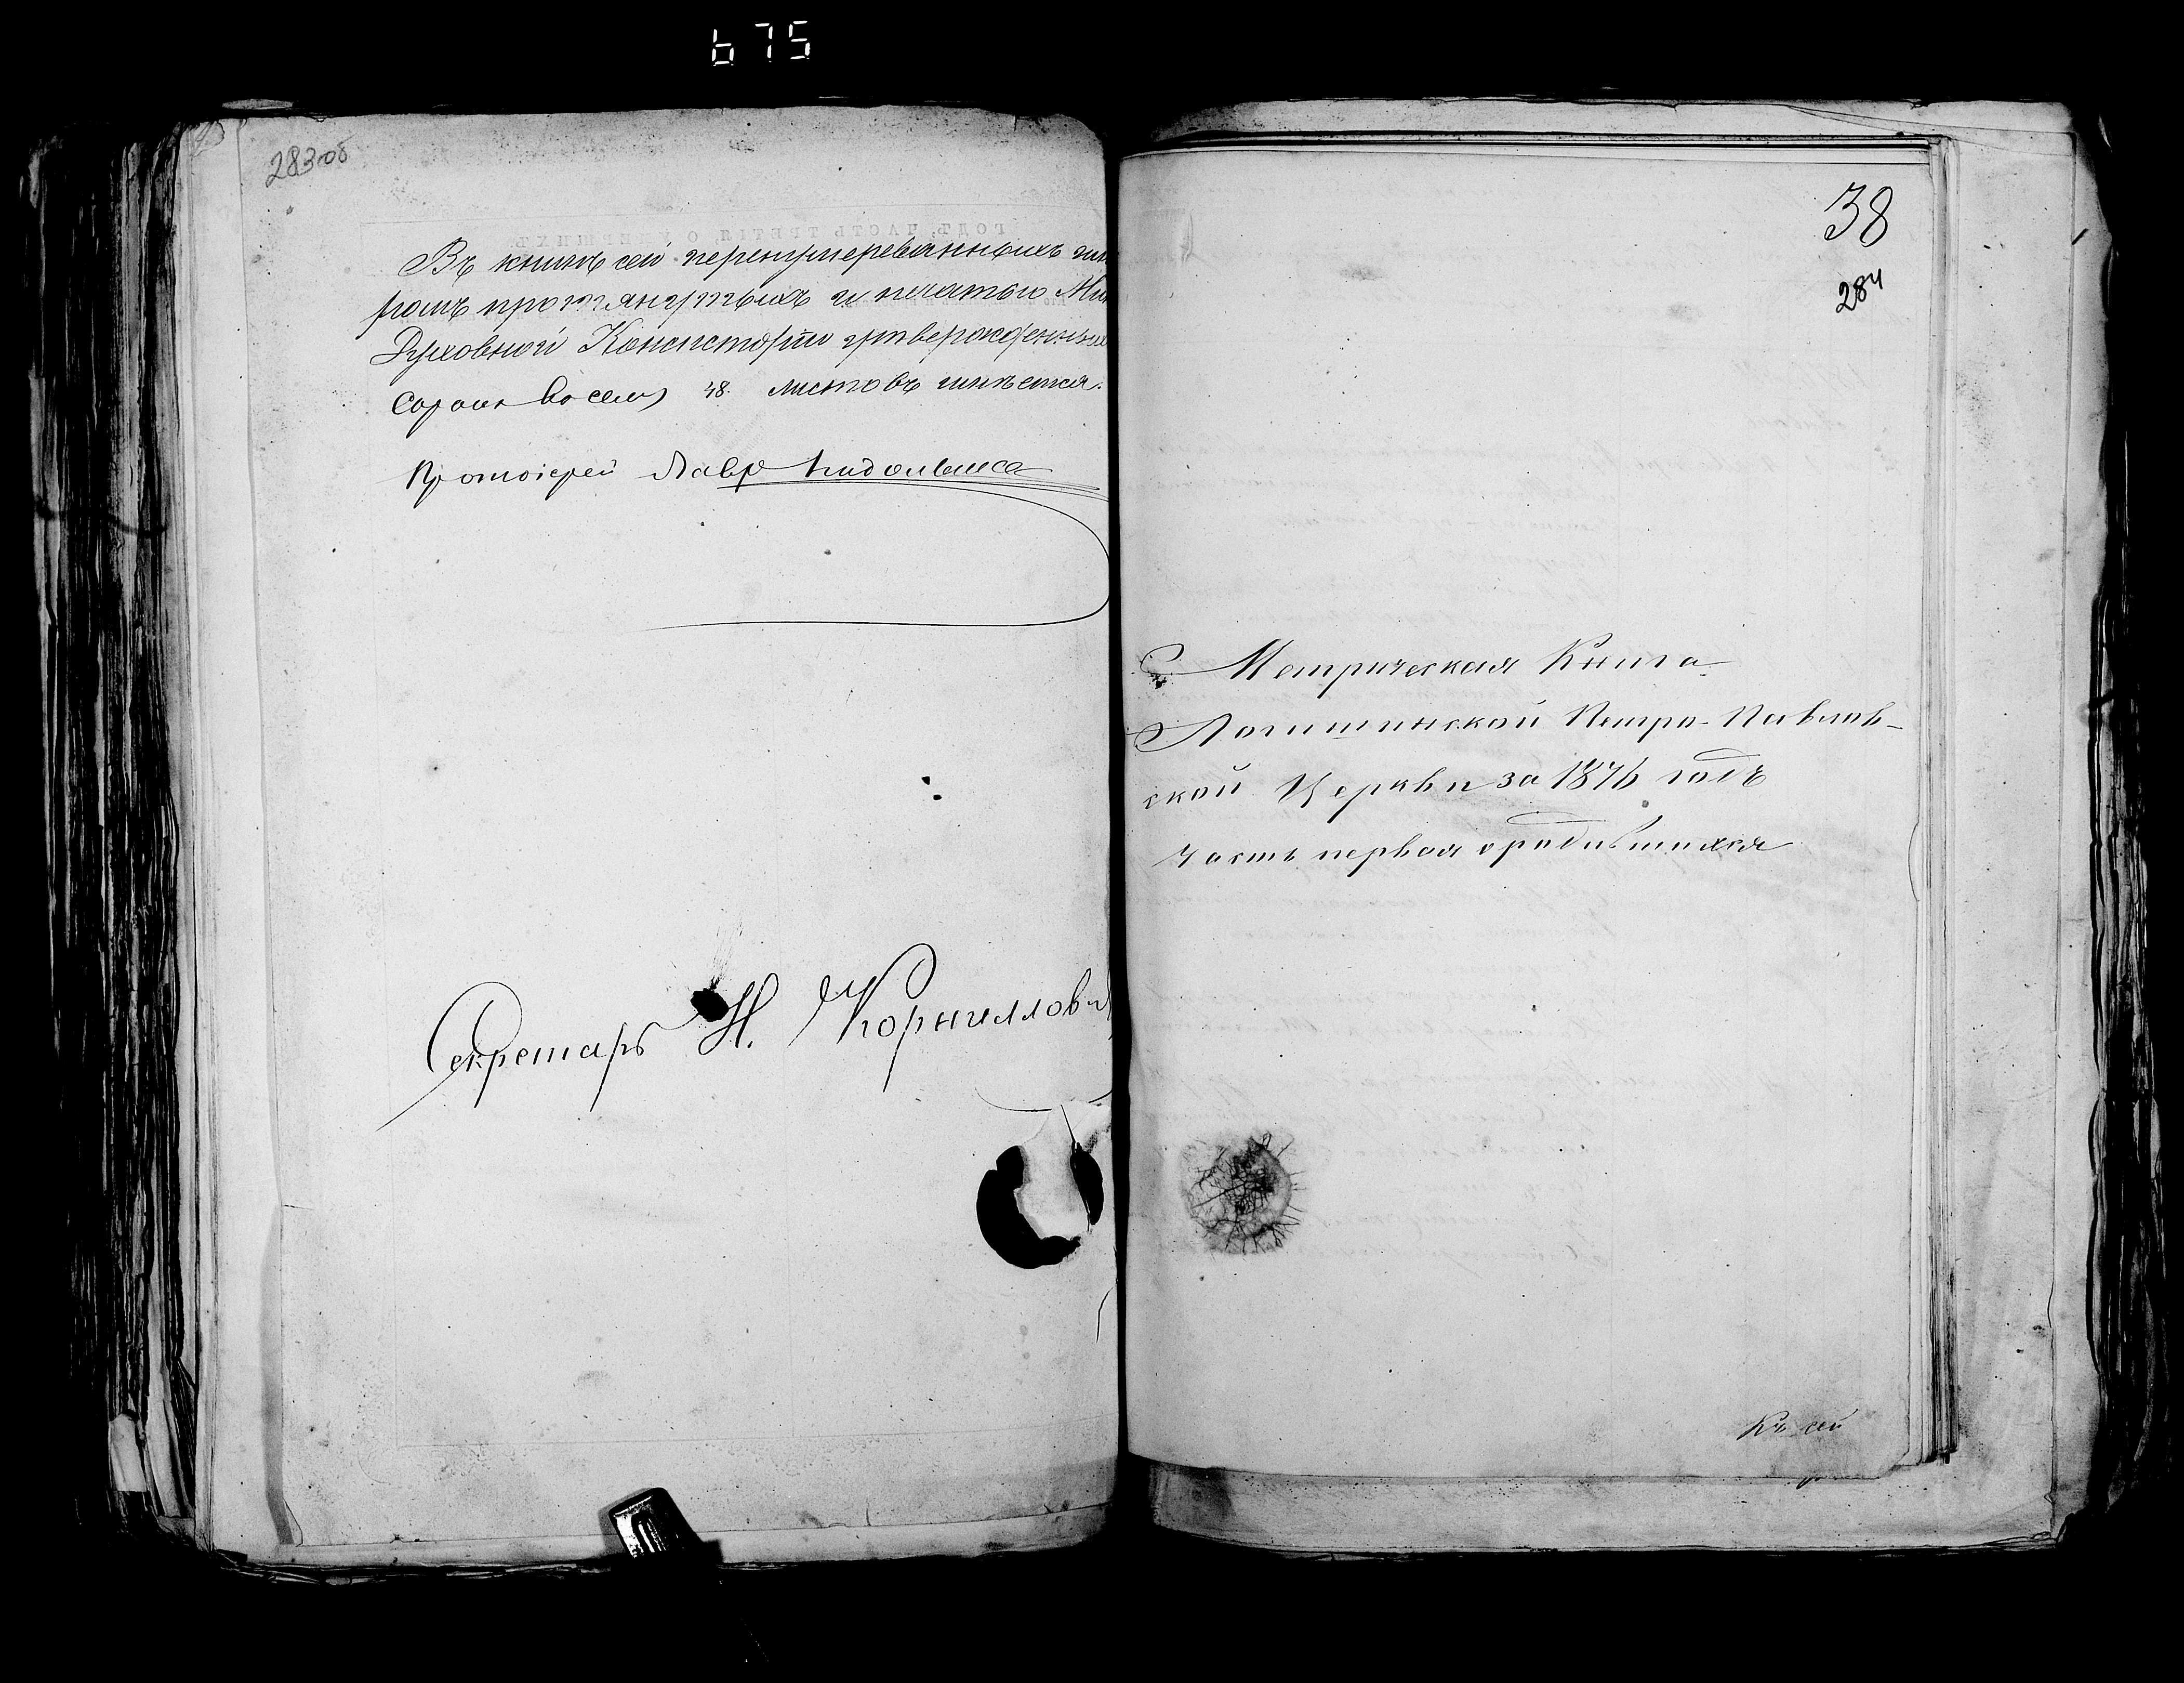 675
283 об
Въ книгѣ сей перенумерованныхъ шну
ромъ протянутыхъ и печатью Мин
Духовной Консисторіи утвержденныхъ
сорокъ восемь 48. листовъ имѣется.
Протоіерей Лавръ
Секретарь Н. Корниллови
38
284
Метрическая Книга
Логишинской Петро-Павлов-
ской Церкви за 1876 годъ
Часть первая о родившихся
Къ сей